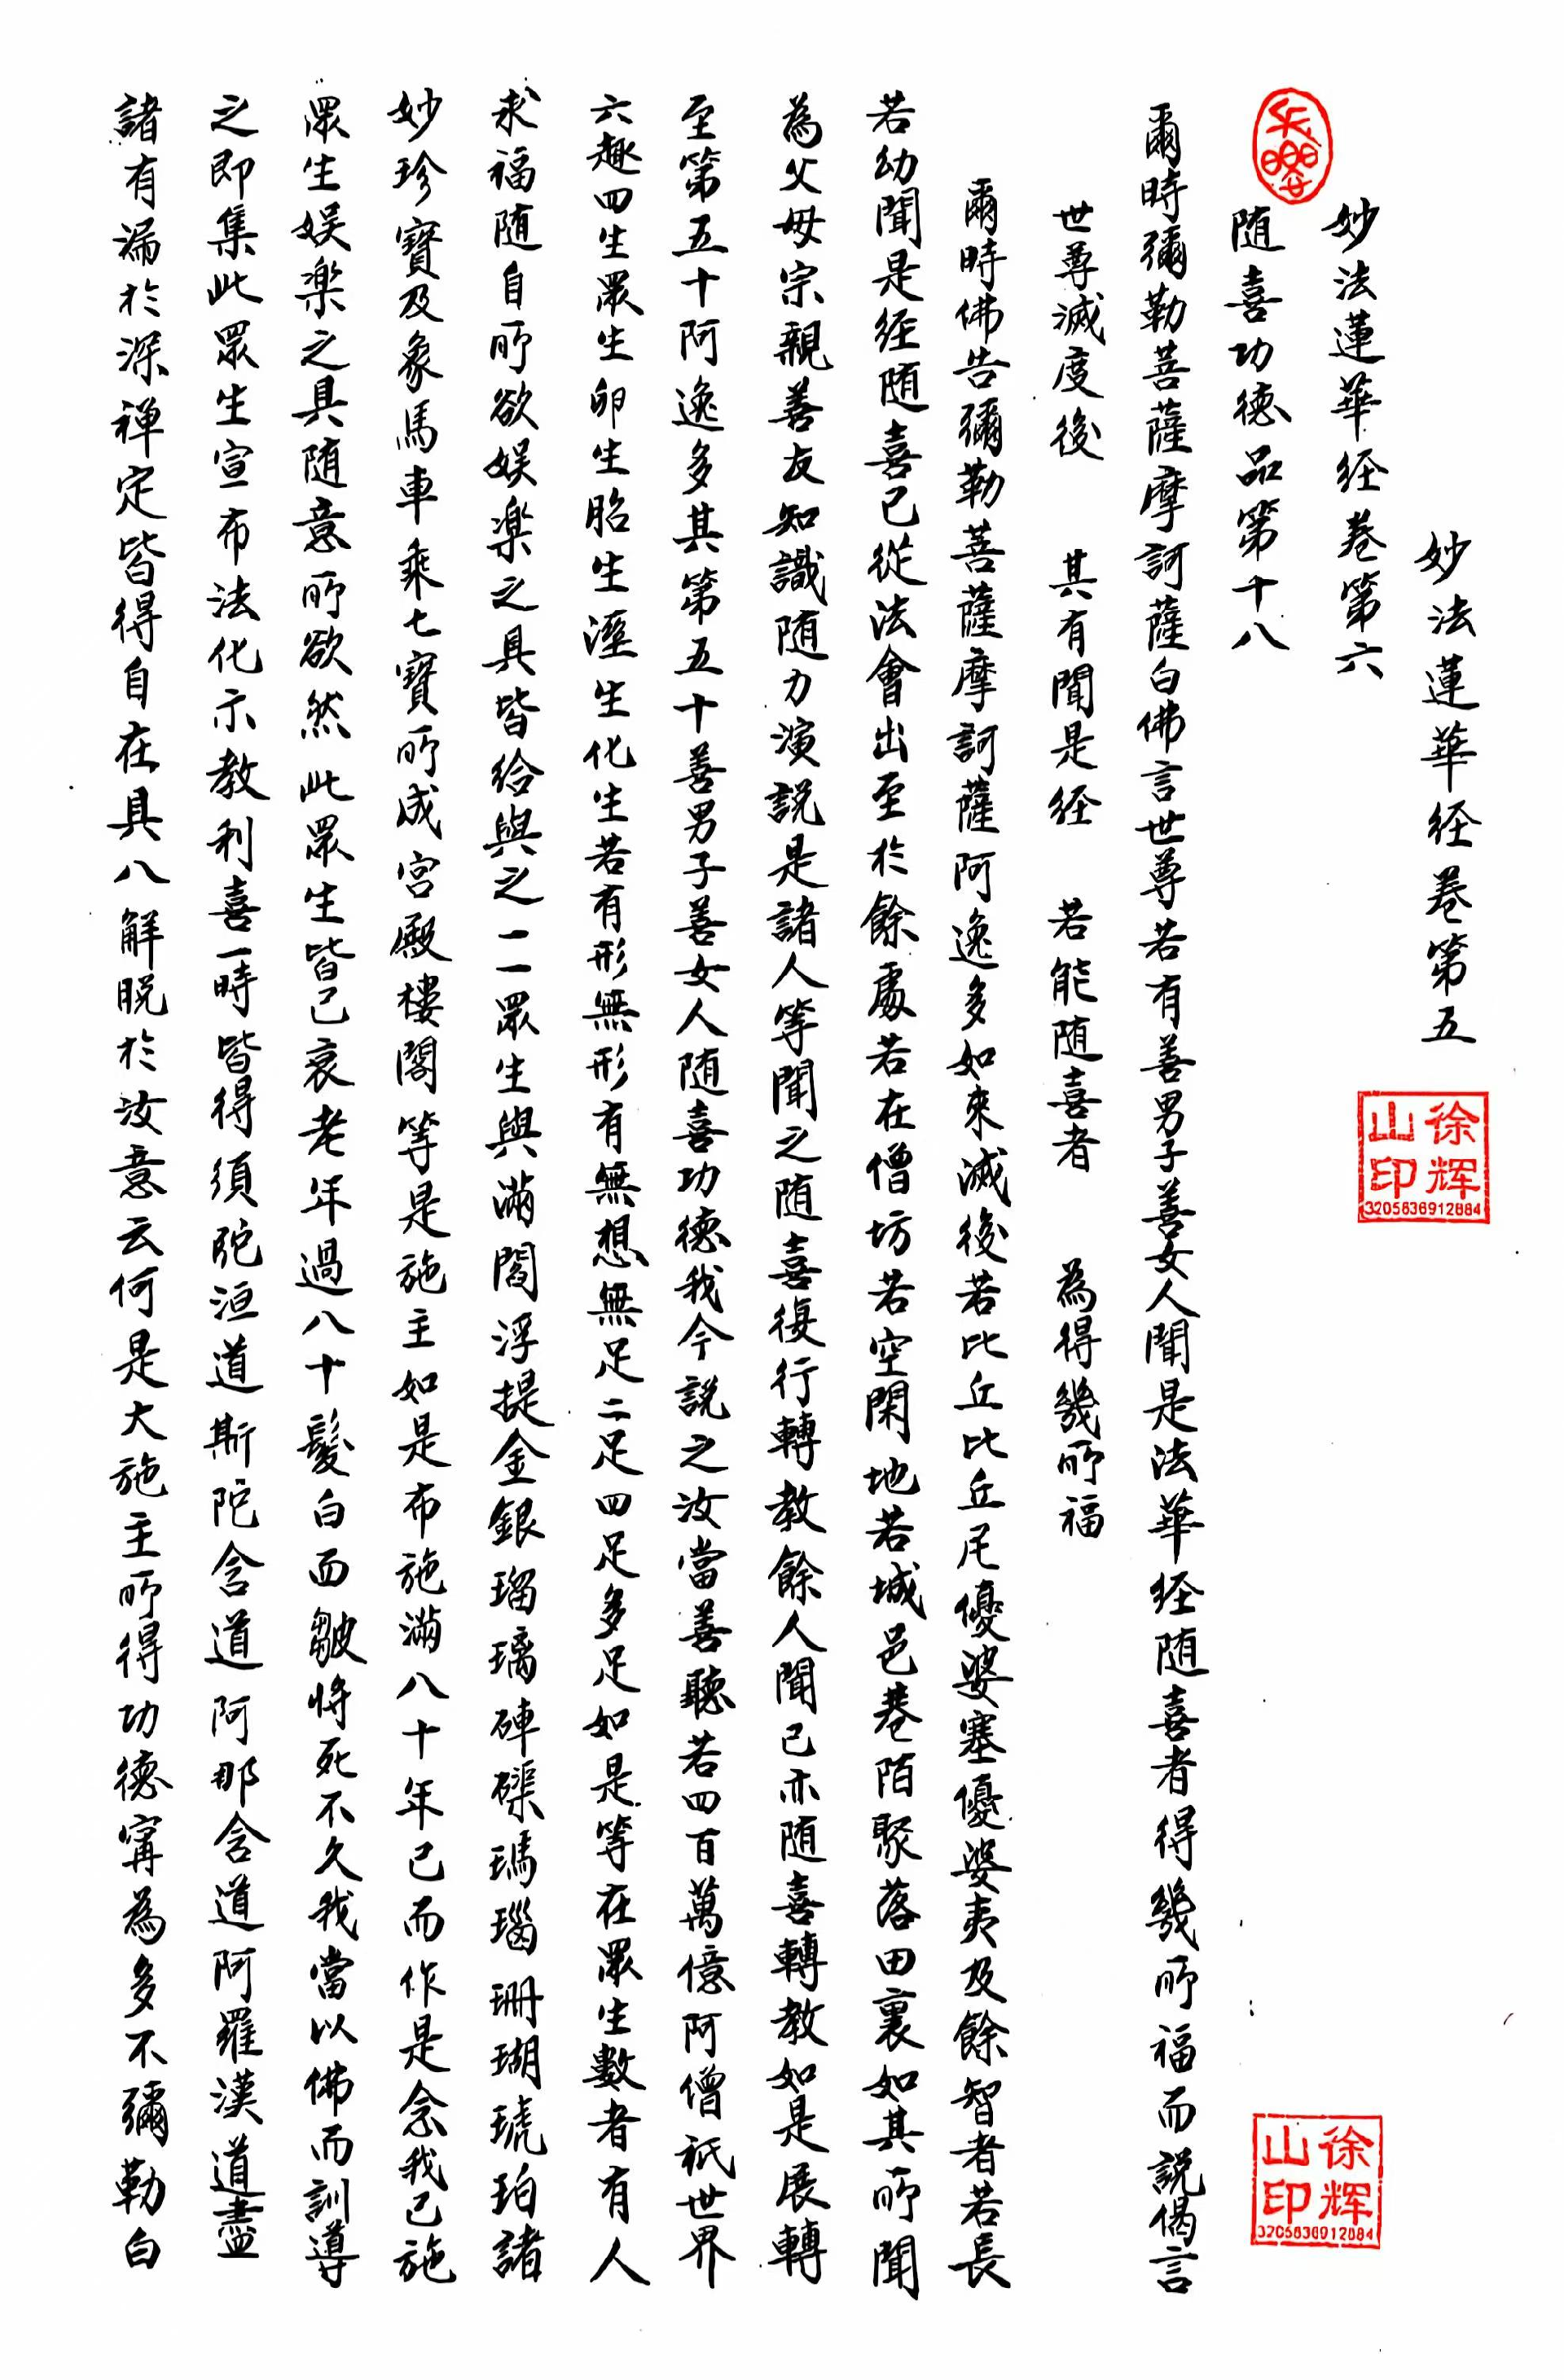 妙法蓮華经卷第五
妙法蓮華经卷第六
随喜功德品第十八
爾時彌勒菩薩摩訶薩白佛言世尊若有善男子善女人聞是法華经随喜者得幾所福而説偈言
世尊滅度後 其有聞是经 若能随喜者 為得幾所福
爾時佛告彌勒菩薩摩訶薩阿逸多如來滅後若比丘比丘尼優婆塞優婆夷及餘智者若長
若幼聞是经随喜已從法會出至於餘處若在僧坊若空閑地若城邑巷陌聚落田裏如其所聞
為父母宗親善友知識随力演説是諸人等聞之随喜復行轉教餘人聞已亦随喜轉教如是展轉
至第五十阿逸多其第五十善男子善女人随喜功德我今説之汝當善聽若四百萬億阿僧祇世界
六趣四生眾生卵生胎生溼生化生若有形無形有無想無足二足四足多足如是等在眾生數者有人
求福随自所欲娱楽之具皆给與之一一眾生與滿閻浮提金銀瑠璃硨磲瑪瑙珊瑚琥珀諸
妙珍寶及象馬車乘七寶所成宮殿樓閣等是施主如是布施滿八十年已而作是念我已施
眾生娱楽之具随意所欲然此眾生皆已衰老年過八十髮白而皺将死不久我當以佛而訓導
之即集此眾生宣布法化示教利喜一時皆得須陀洹道斯陀含道阿那含道阿羅漢道盡
諸有漏於深禅定皆得自在具八解脱於汝意云何是大施主所得功德寗為多不彌勒白
徐辉山印
3205836912884
徐辉山印
3205836912884